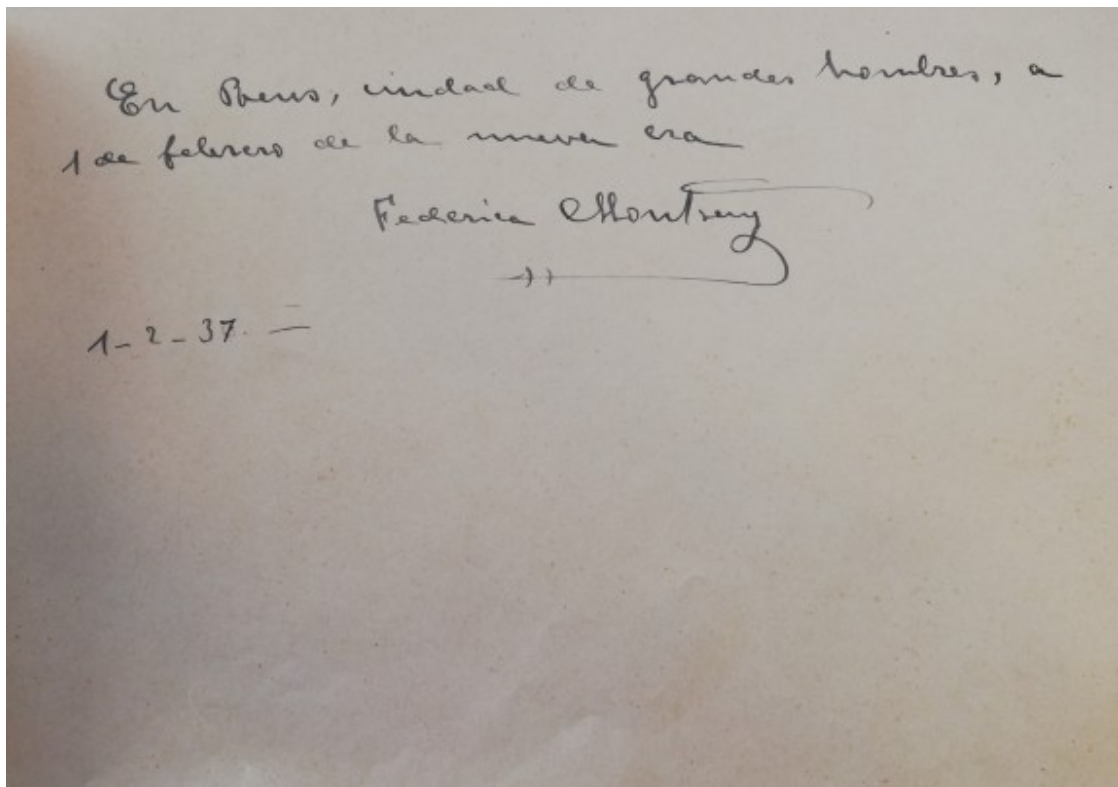 En Reus, ciudad de grandes hombres, a
1 de febrero de la nueva era
Federica Montseny
1-2-37. =